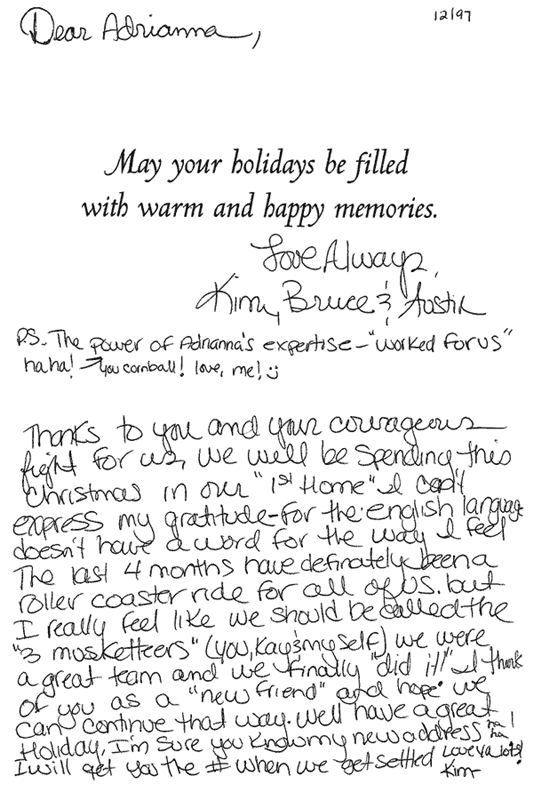 12/97
Dear Adrianna,
May your holidays be filled
with warm and happy memories.
Love Always,
Kim, Bruce & Austin
P.S. The power of Adrianna's expertise - "worked for us"
ha ha! → you cornball! love, me! :)
Thanks to you and your courageous
fight for us, we will be spending this
Christmas in our "1st Home" I can't
express my gratitude - for the english language
doesn't have a word for the way I feel
The last 4 months have definately been a
roller coaster ride for all of us. but
I really feel like we should be called the
"3 musketeers" (you, Kay & myself) we were
a great team and we finally "did it!" I think
of you as a "new friend" and hope we
can continue that way. Well have a great
Holiday, I'm sure you know my new address ha ha!
I will get you the # when we get settled Love ya lots!
Kim